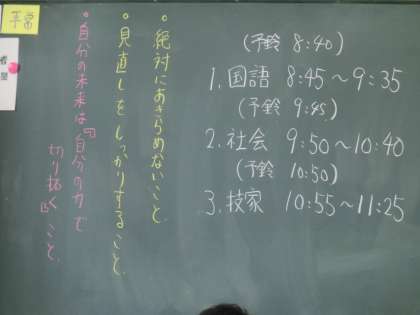 (予鈴 8:40)
1. 国語 8:45～9:35
(予鈴 9:45)
2. 社会 9:50～10:40
(予鈴 10:50)
3. 技家 10:55～11:25
・絶対にあきらめないこと。
・見直しをしっかりすること。
・自分の未来は自分の力で
切り拓くこと。